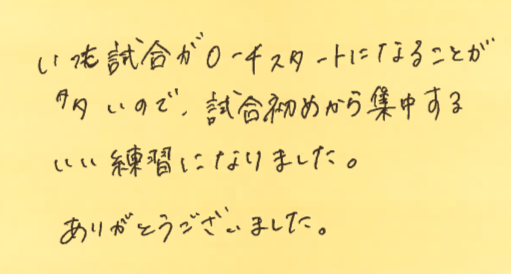 いつも試合が0-4スタートになることが
多いので、試合初めから集中する
いい練習になりました。
ありがとうございました。